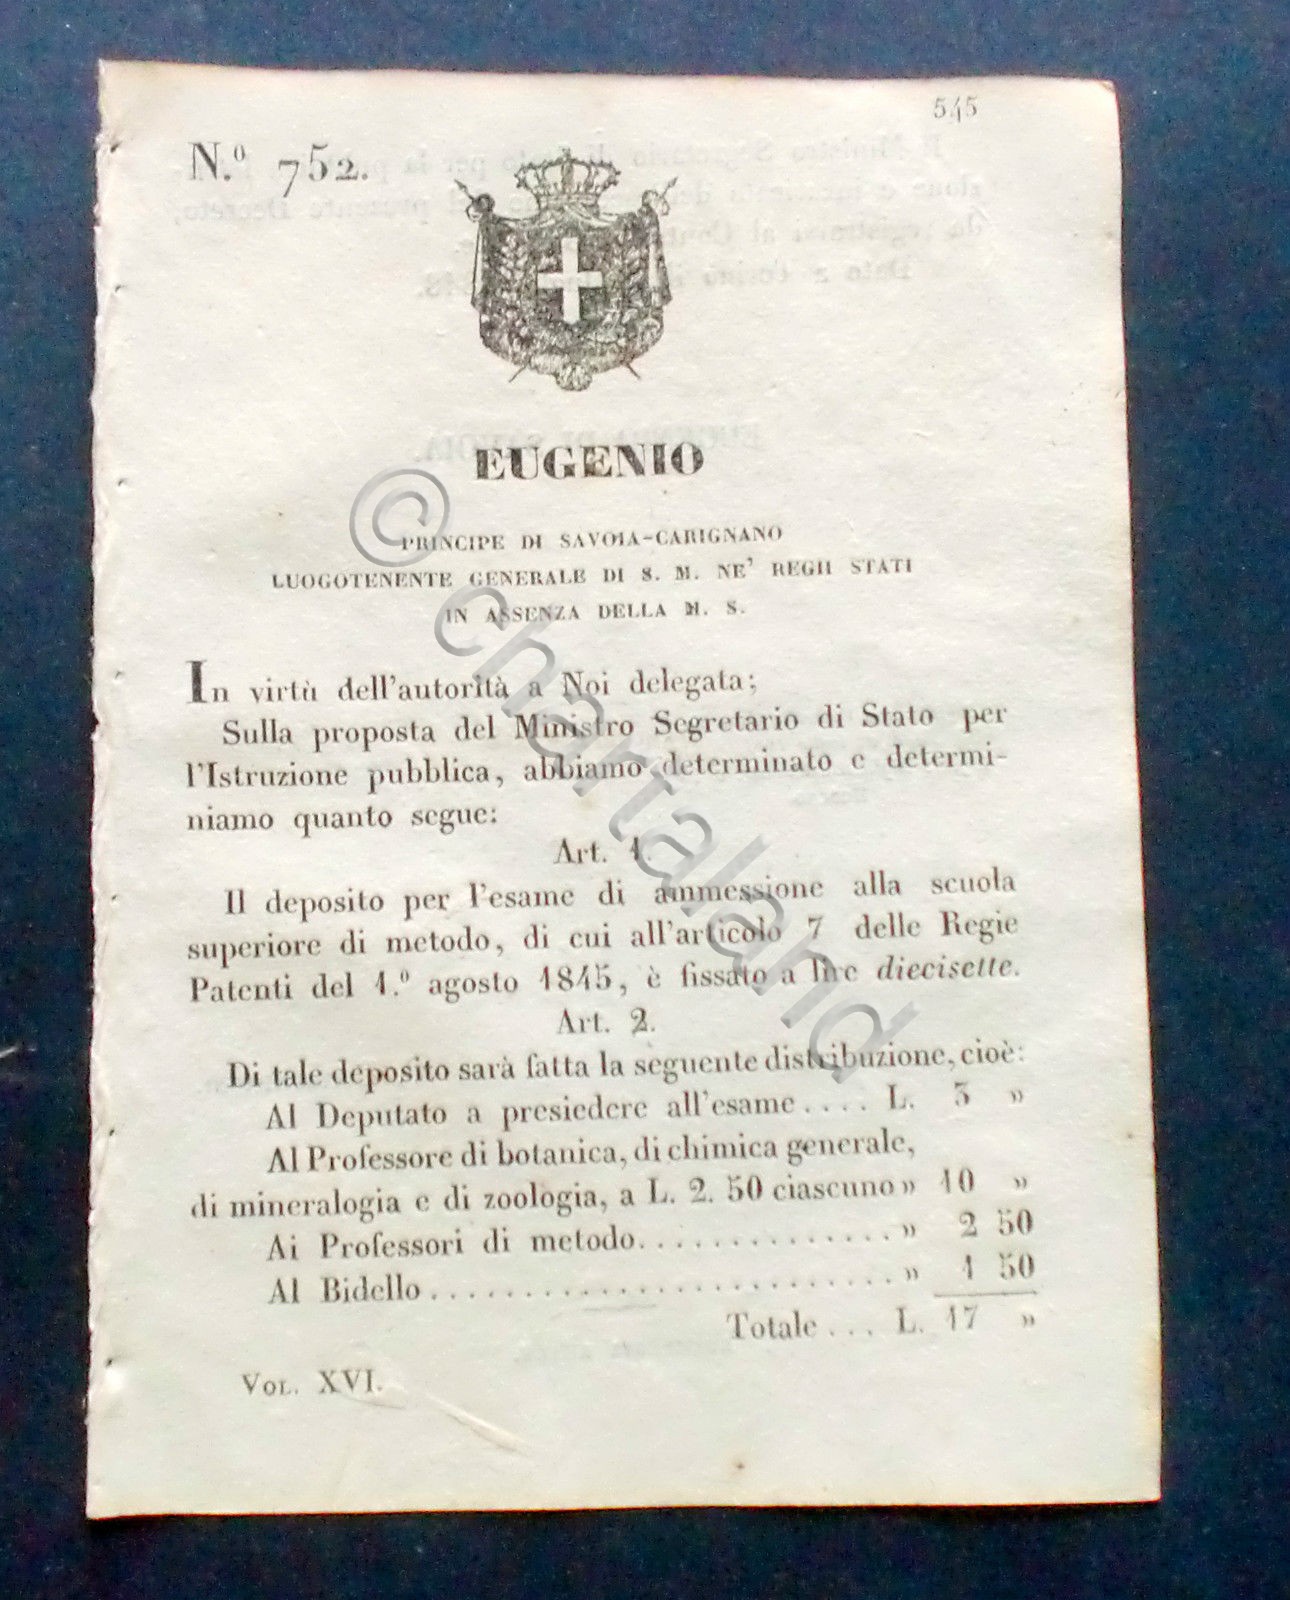 545
N.º 752.
EUGENIO
PRINCIPE DI SAVOIA-CARIGNANO
LUOGOTENENTE GENERALE DI S. M. NE' REGII STATI
IN ASSENZA DELLA M. S.
In virtù dell'autorità a Noi delegata;
Sulla proposta del Ministro Segretario di Stato per
l'Istruzione pubblica, abbiamo determinato e determi-
niamo quanto segue:
Art. 1.
Il deposito per l'esame di ammessione alla scuola
superiore di metodo, di cui all'articolo 7 delle Regie
Patenti del 1.º agosto 1845, è fissato a lire diecisette.
Art. 2.
Di tale deposito sarà fatta la seguente distribuzione, cioè:
Al Deputato a presiedere all'esame .... L. 3 »
Al Professore di botanica, di chimica generale,
di mineralogia e di zoologia, a L. 2. 50 ciascuno » 10 »
Ai Professori di metodo.............. » 2 50
Al Bidello......................... » 1 50
Totale ... L. 17 »
VOL. XVI.
© chartaland